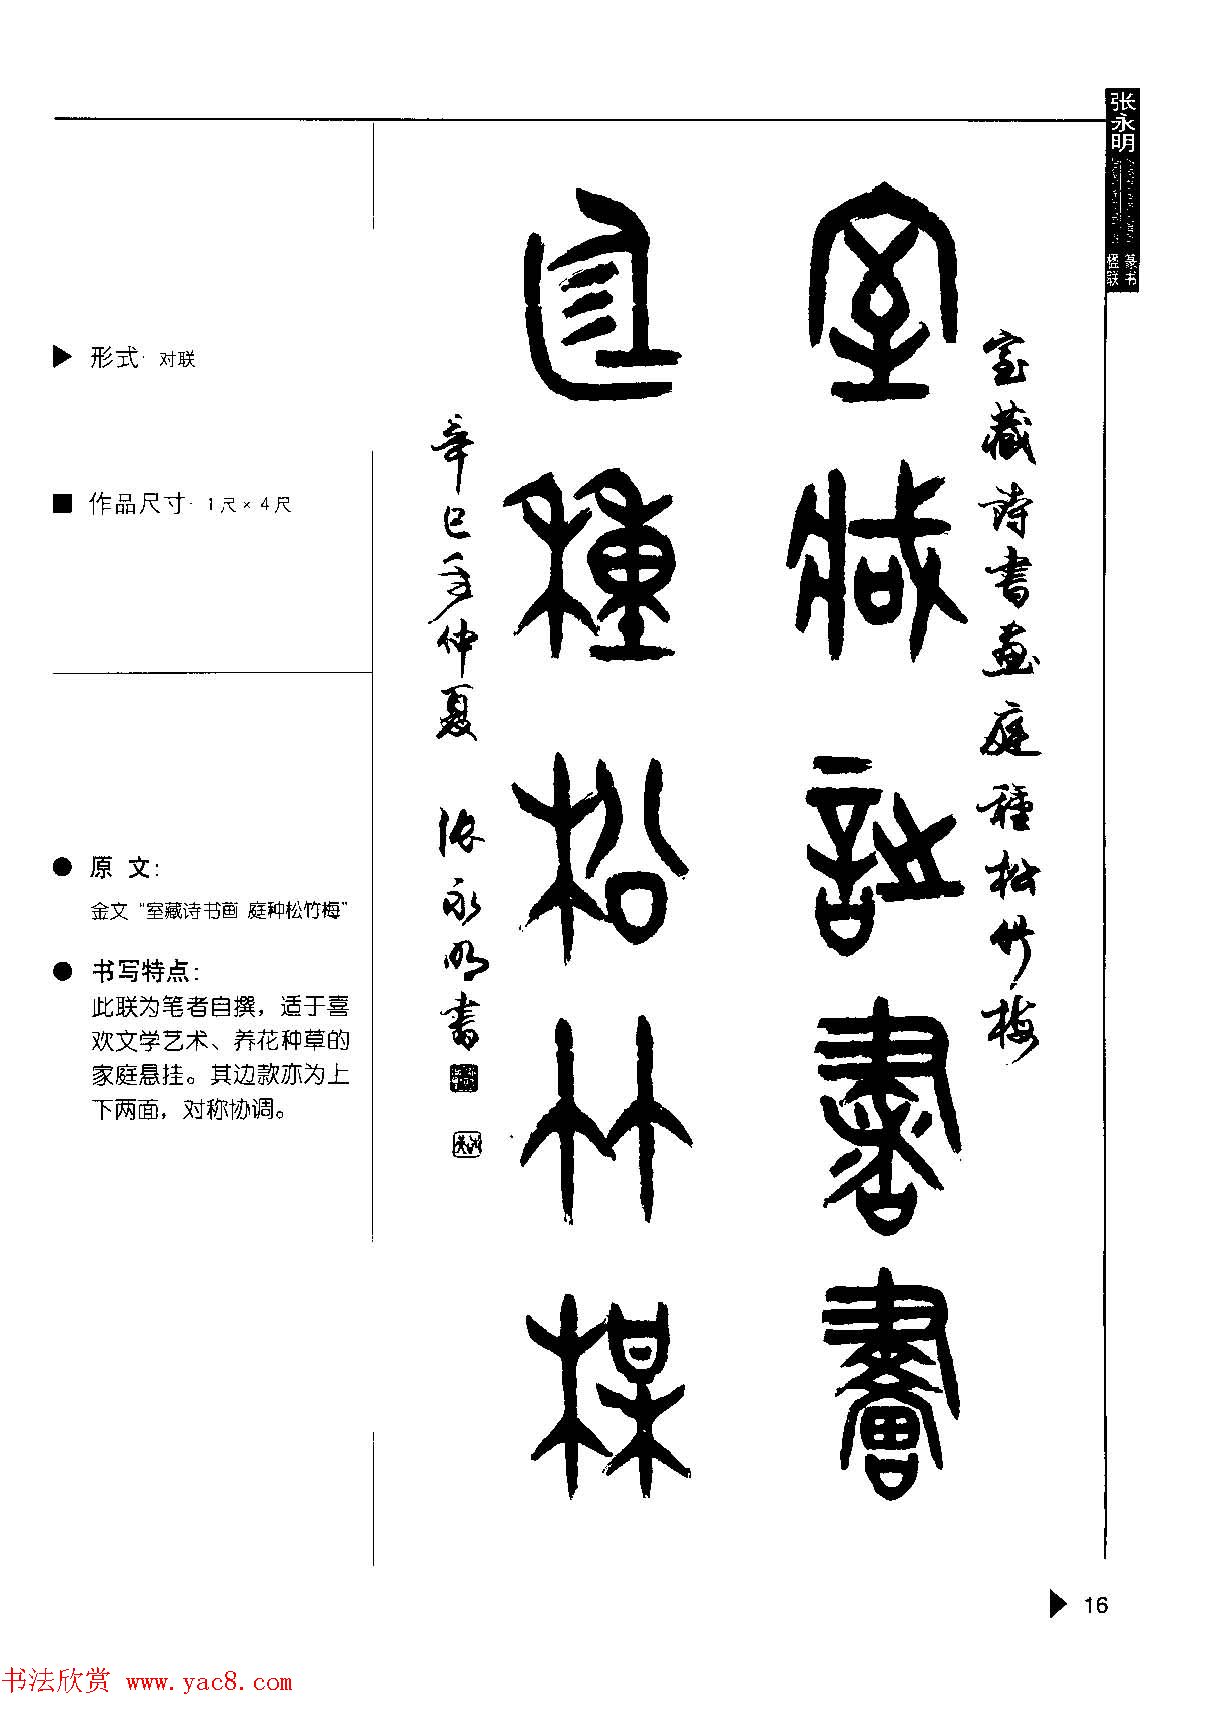 张永明
篆书
楹联
室藏詩書畫
庭種松竹梅
室藏詩書畫庭種松竹梅
辛巳年仲夏 张永明书
形式·对联
作品尺寸·1尺×4尺
原 文：
金文“室藏诗书画 庭种松竹梅”
书写特点：
此联为笔者自撰，适于喜
欢文学艺术、养花种草的
家庭悬挂。其边款亦为上
下两面，对称协调。
16
书法欣赏 www.yac8.com